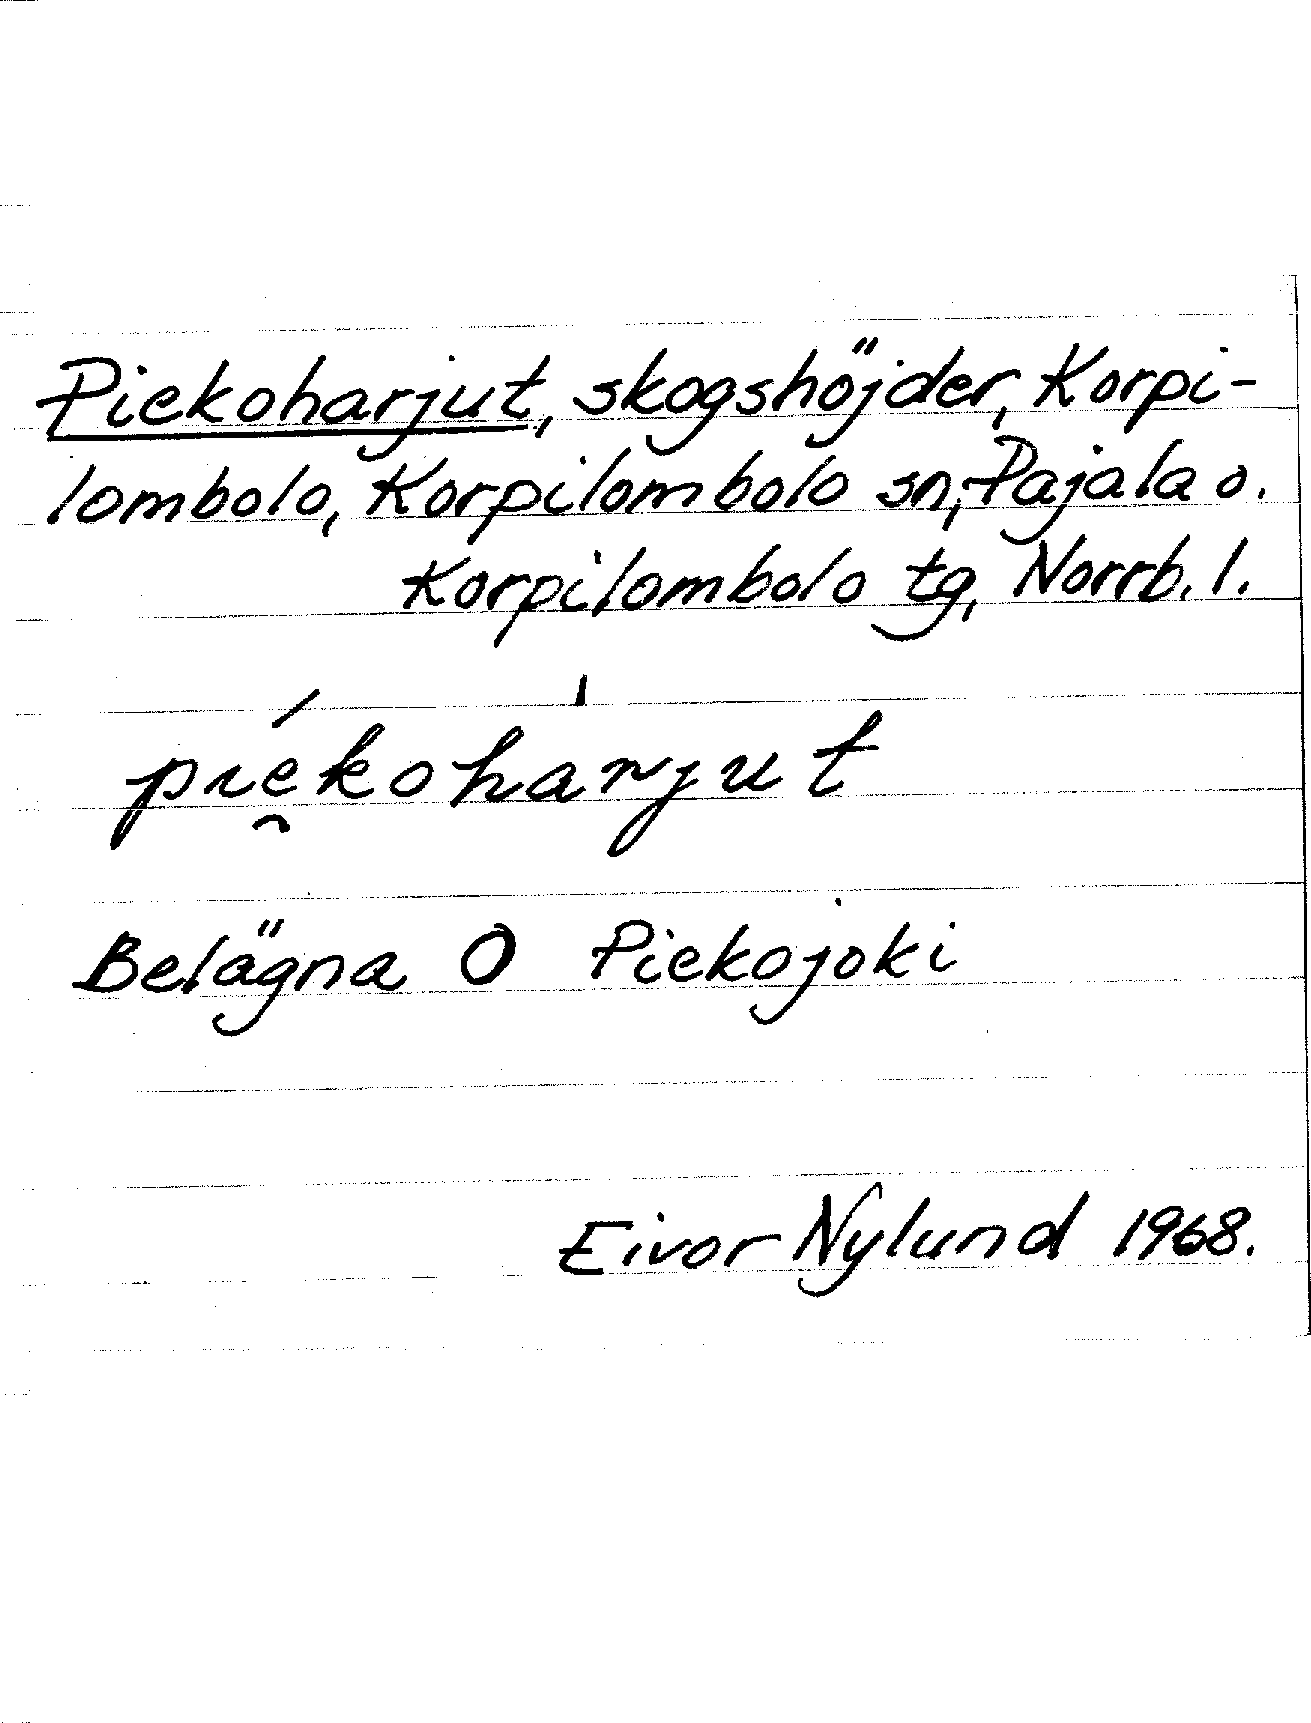 Piekoharjut, skogshöjder, Korpi-
lombolo, Korpilombolo sn, Pajala o.
Korpilombolo tg, Norrb. l.
pié̯kohàrjut
Belägna O Piekojoki
Eivor Nylund 1968.